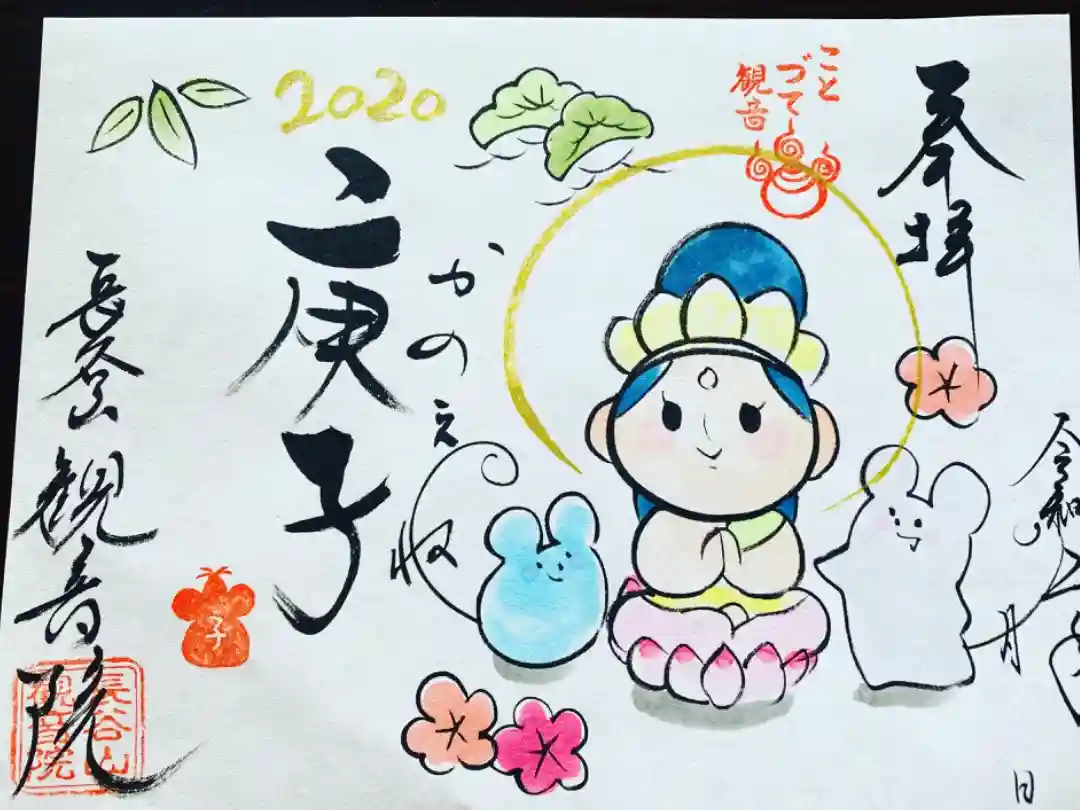 奉拝
令和二年 月 日
こと
づて
観音
2020
庚子
かのえね
長谷山観音院
子
長谷山
観音院